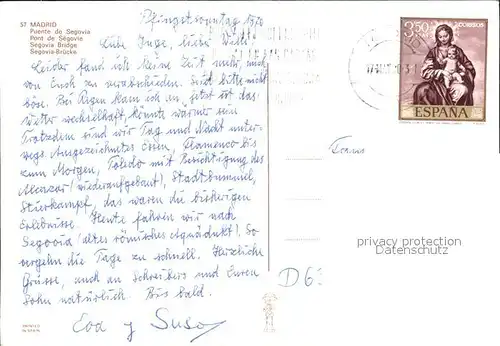 57 MADRID
Puente de Segovia
Pont de Ségovie
Segovia Bridge
Segovia-Brücke
Pfingstsonntag 1970
Liebe Inge, lieber Willi!
Leider fand ich keine Zeit mehr mich
von Euch zu verabschieden. Seid bitte nicht
böse. Bei Regen kam ich an, jetzt ist das
Wetter wechselhaft, könnte wärmer sein.
Trotzdem sind wir Tag und Nacht unter-
wegs. Ausgezeichnetes Essen, Flamenco bis
zum Morgen, Toledo mit Besichtigung des
Alcazar (wiederaufgebaut), Stadtbummel,
Stierkampf, das waren die bisherigen
Erlebnisse. Heute fahren wir nach
Segovia (altes römisches Aquädukt). So
vergehn die Tage zu schnell. Herzliche
Grüsse, auch an Schreibers und Euren
Sohn natürlich. Bis bald.
Eva y Suso
3,50 PTAS
CORREOS
ESPAÑA
privacy protection
Datenschutz
D 63